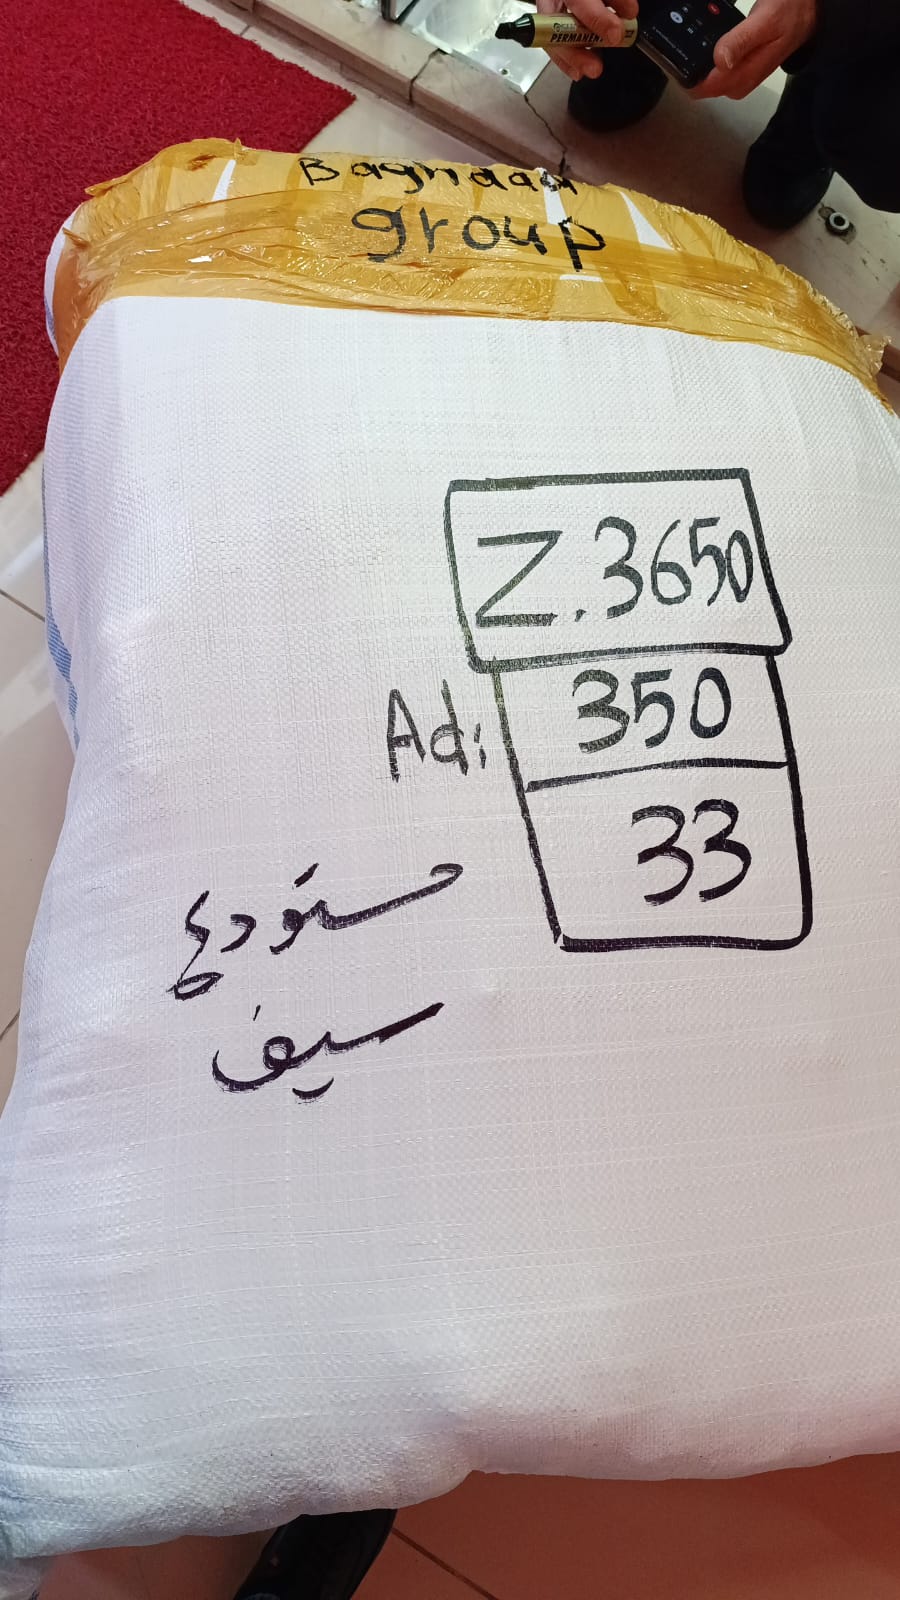 PERMANENT
Baghdad
group
Z.3650
Ad: 350
33
مستودع
سيف